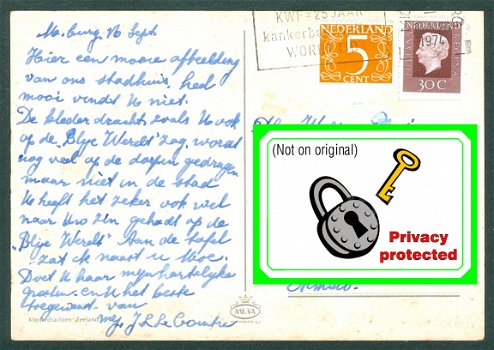 M. burg, 16 Sept
Hier een mooie afbeelding
van ons stadhuis, heel
mooi vindt U niet.
De klederdracht, zoals U ook
op de "Blije Wereld" zag, wordt
nog veel op de dorpen gedragen
maar niet in de stad
U heeft het zeker ook wel
naar Uw zin gehad op de
"Blije Wereld" Aan de tafel
zat ik naast U
Doet U haar mijn hartelijke
groeten. En U het beste
toegewenst van
Klederdrachten "Zeeland"
MUVA
KWF = 25 JAAR
kankerbe
WOR
1974
NEDERLAND
5
CENT
NEDERLAND
30 C
(Not on original)
Privacy
protected